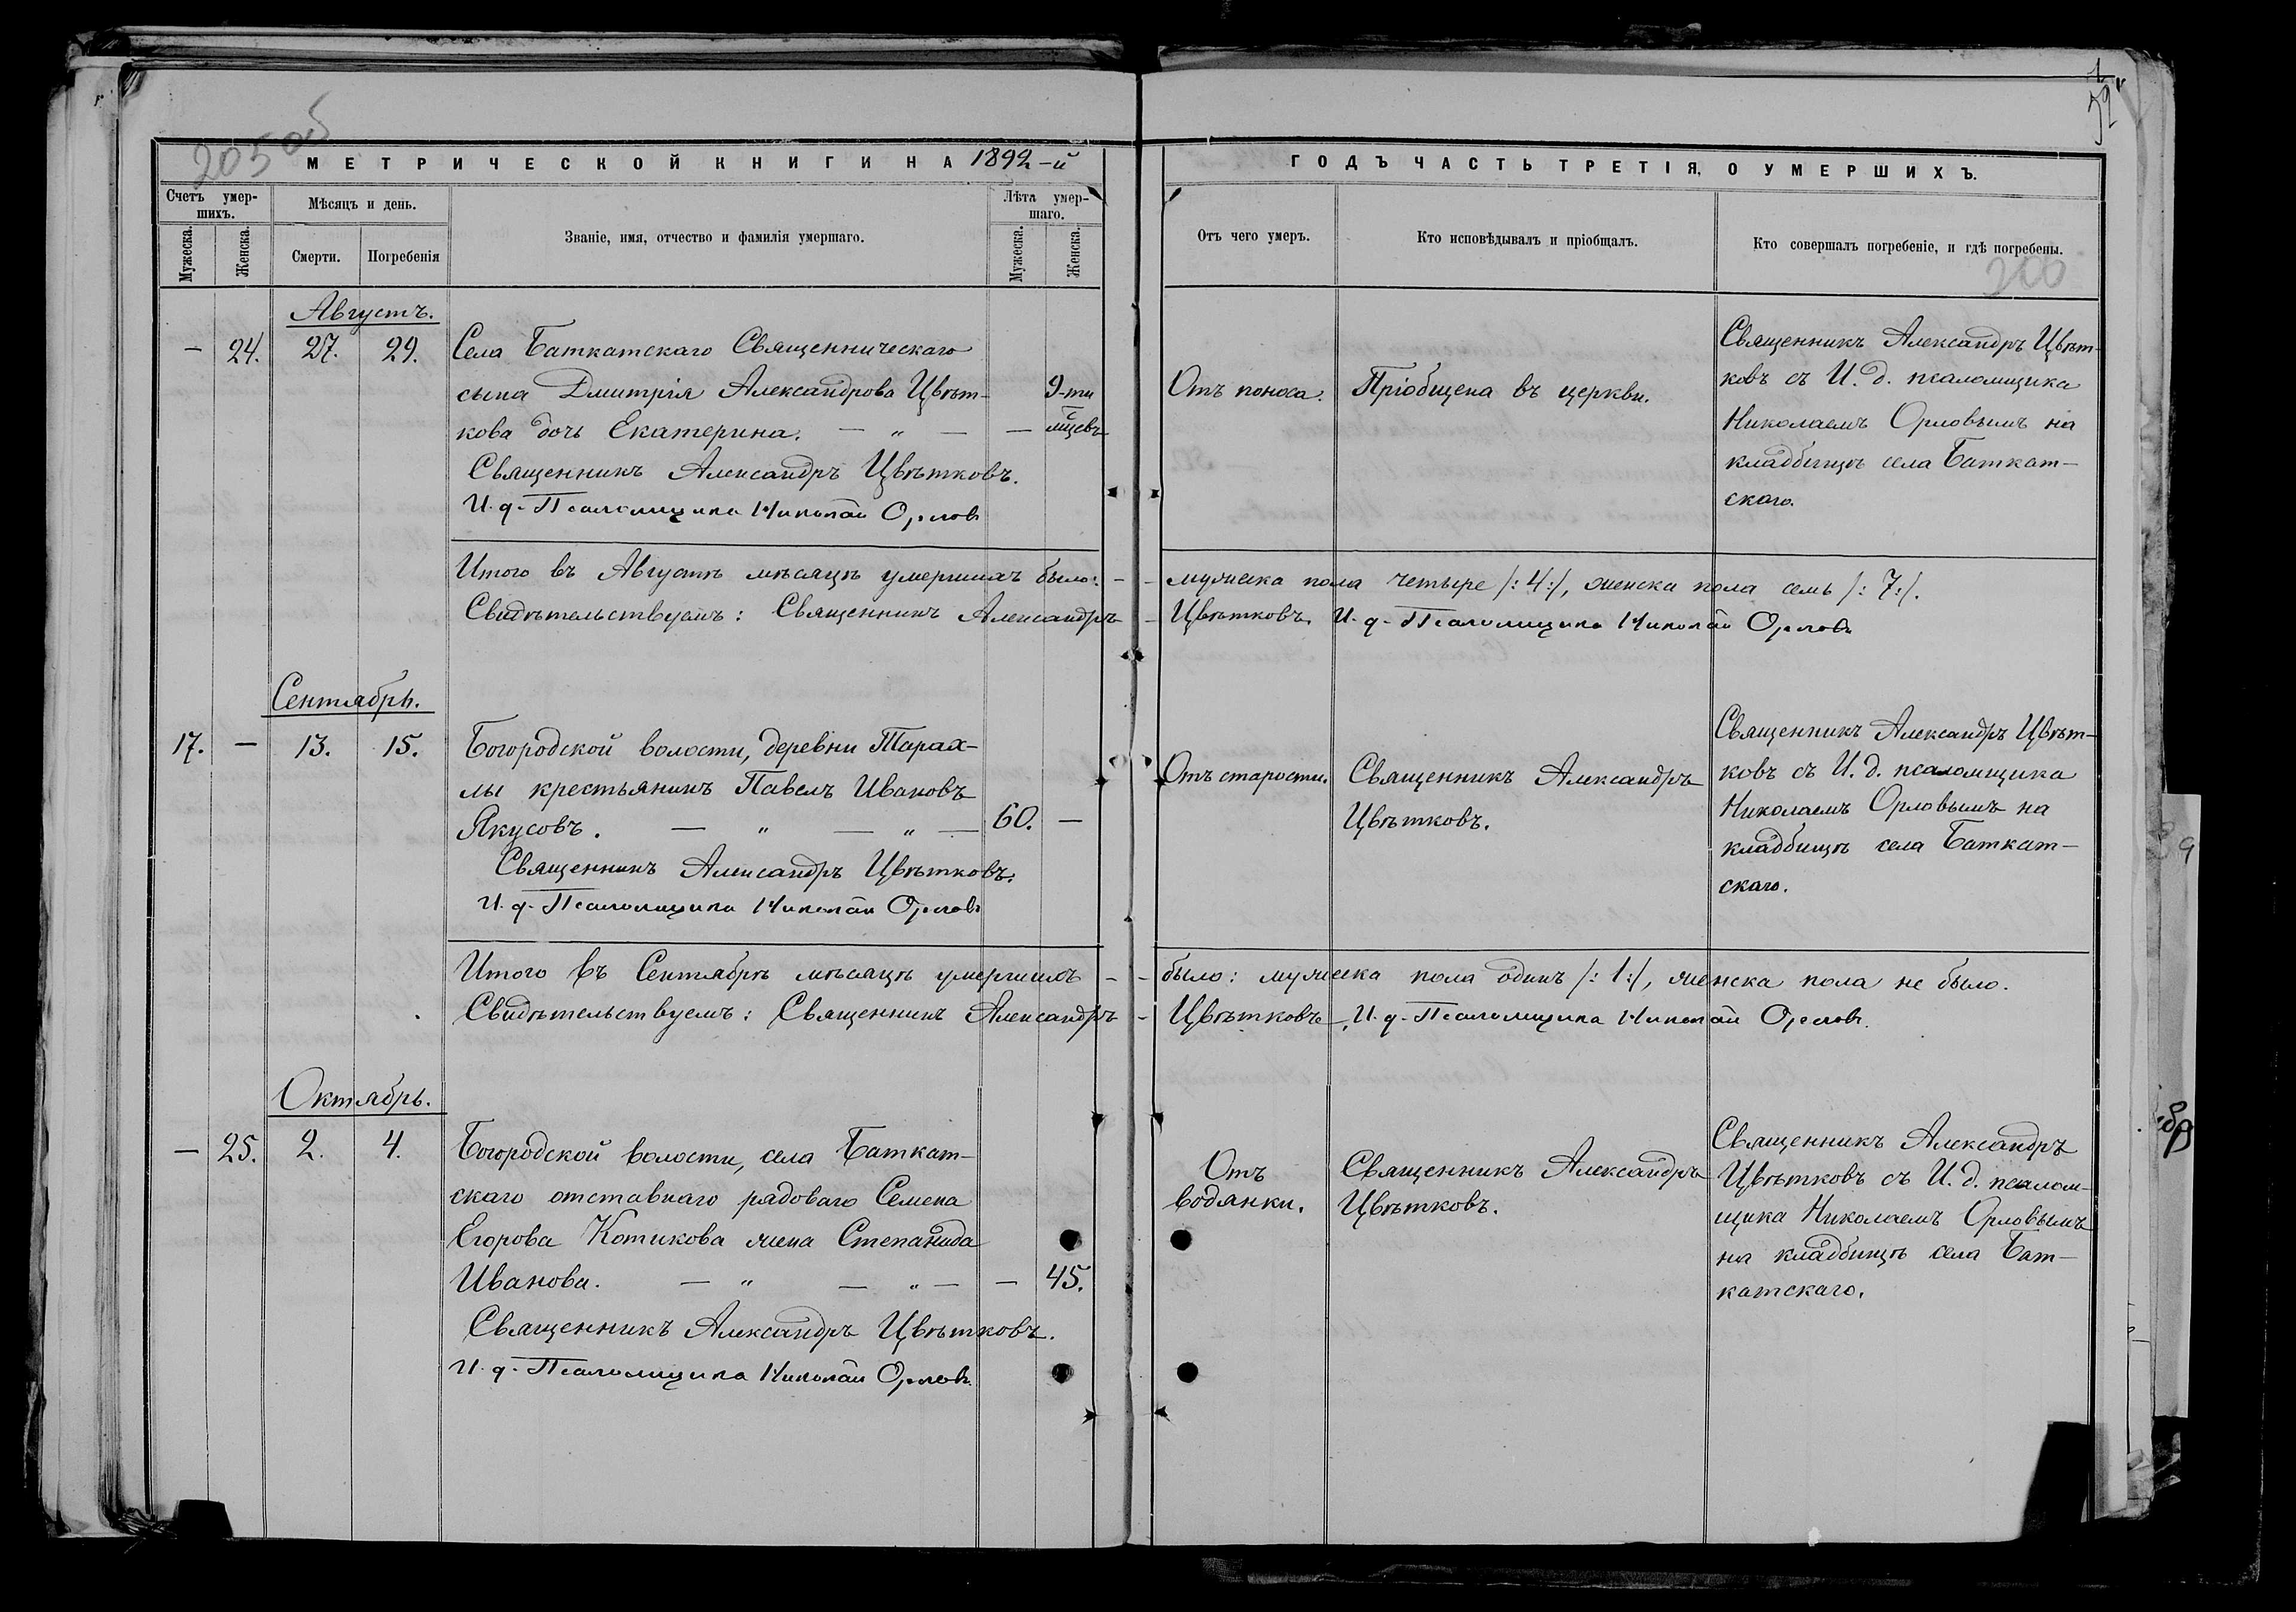 205 об
МЕТРИЧЕСКОЙ КНИГИ НА 1892-й
Счетъ умер-
шихъ.
Мѣсяцъ и день.
Званіе, имя, отчество и фамилія умершаго.
Лѣта умер-
шаго.
Мужеска.
Женска.
Смерти.
Погребенія
Мужеска.
Женска.
Августъ.
— 24. 27. 29. Села Баткатскаго Священническаго
сына Дмитрія Александрова Цвѣт- 9-ти
кова дочь Екатерина. — „ — — мѣцевъ
Священникъ Александръ Цвѣтковъ.
И. д. Псаломщика Николай Орловъ
Итого въ Августѣ мѣсяцѣ умершихъ было: -
Свидѣтельствуемъ: Священникъ Александръ
Сентябрь.
17. — 13. 15. Богородской волости, деревни Тарах-
лы крестьянинъ Павелъ Ивановъ
Якусовъ. — „ — „ — 60. —
Священникъ Александръ Цвѣтковъ.
И. д. Псаломщика Николай Орловъ
Итого въ Сентябрѣ мѣсяцѣ умершихъ -
Свидѣтельствуемъ: Священникъ Александръ
Октябрь.
— 25. 2. 4. Богородской волости, села Баткат-
скаго отставнаго рядоваго Семена
Егорова Котикова жена Степанида
Иванова. — „ — „ — — 45.
Священникъ Александръ Цвѣтковъ.
И. д. Псаломщика Николай Орловъ
ГОДЪ ЧАСТЬ ТРЕТІЯ, О УМЕРШИХЪ.
Отъ чего умеръ.
Кто исповѣдывалъ и пріобщалъ.
Кто совершалъ погребеніе, и гдѣ погребены.
200
Отъ поноса.
Пріобщена въ церкви.
Священникъ Александръ Цвѣт-
ковъ съ И. д. псаломщика
Николаемъ Орловымъ на
кладбищѣ села Баткат-
скаго.
- мужеска пола четыре /:4:/, женска пола семь /:7:/.
- Цвѣтковъ. И. д. Псаломщика Николай Орловъ
Отъ старости.
Священникъ Александръ
Цвѣтковъ.
Священникъ Александръ Цвѣт-
ковъ съ И. д. псаломщика
Николаемъ Орловымъ на
кладбищѣ села Баткат-
скаго.
- было: мужеска пола одинъ /:1:/, женска пола не было.
- Цвѣтковъ, И. д. Псаломщика Николай Орловъ.
Отъ
водянки.
Священникъ Александръ
Цвѣтковъ.
Священникъ Александръ
Цвѣтковъ съ И. д. псалом-
щика Николаемъ Орловымъ
на кладбищѣ села Бат-
катскаго.